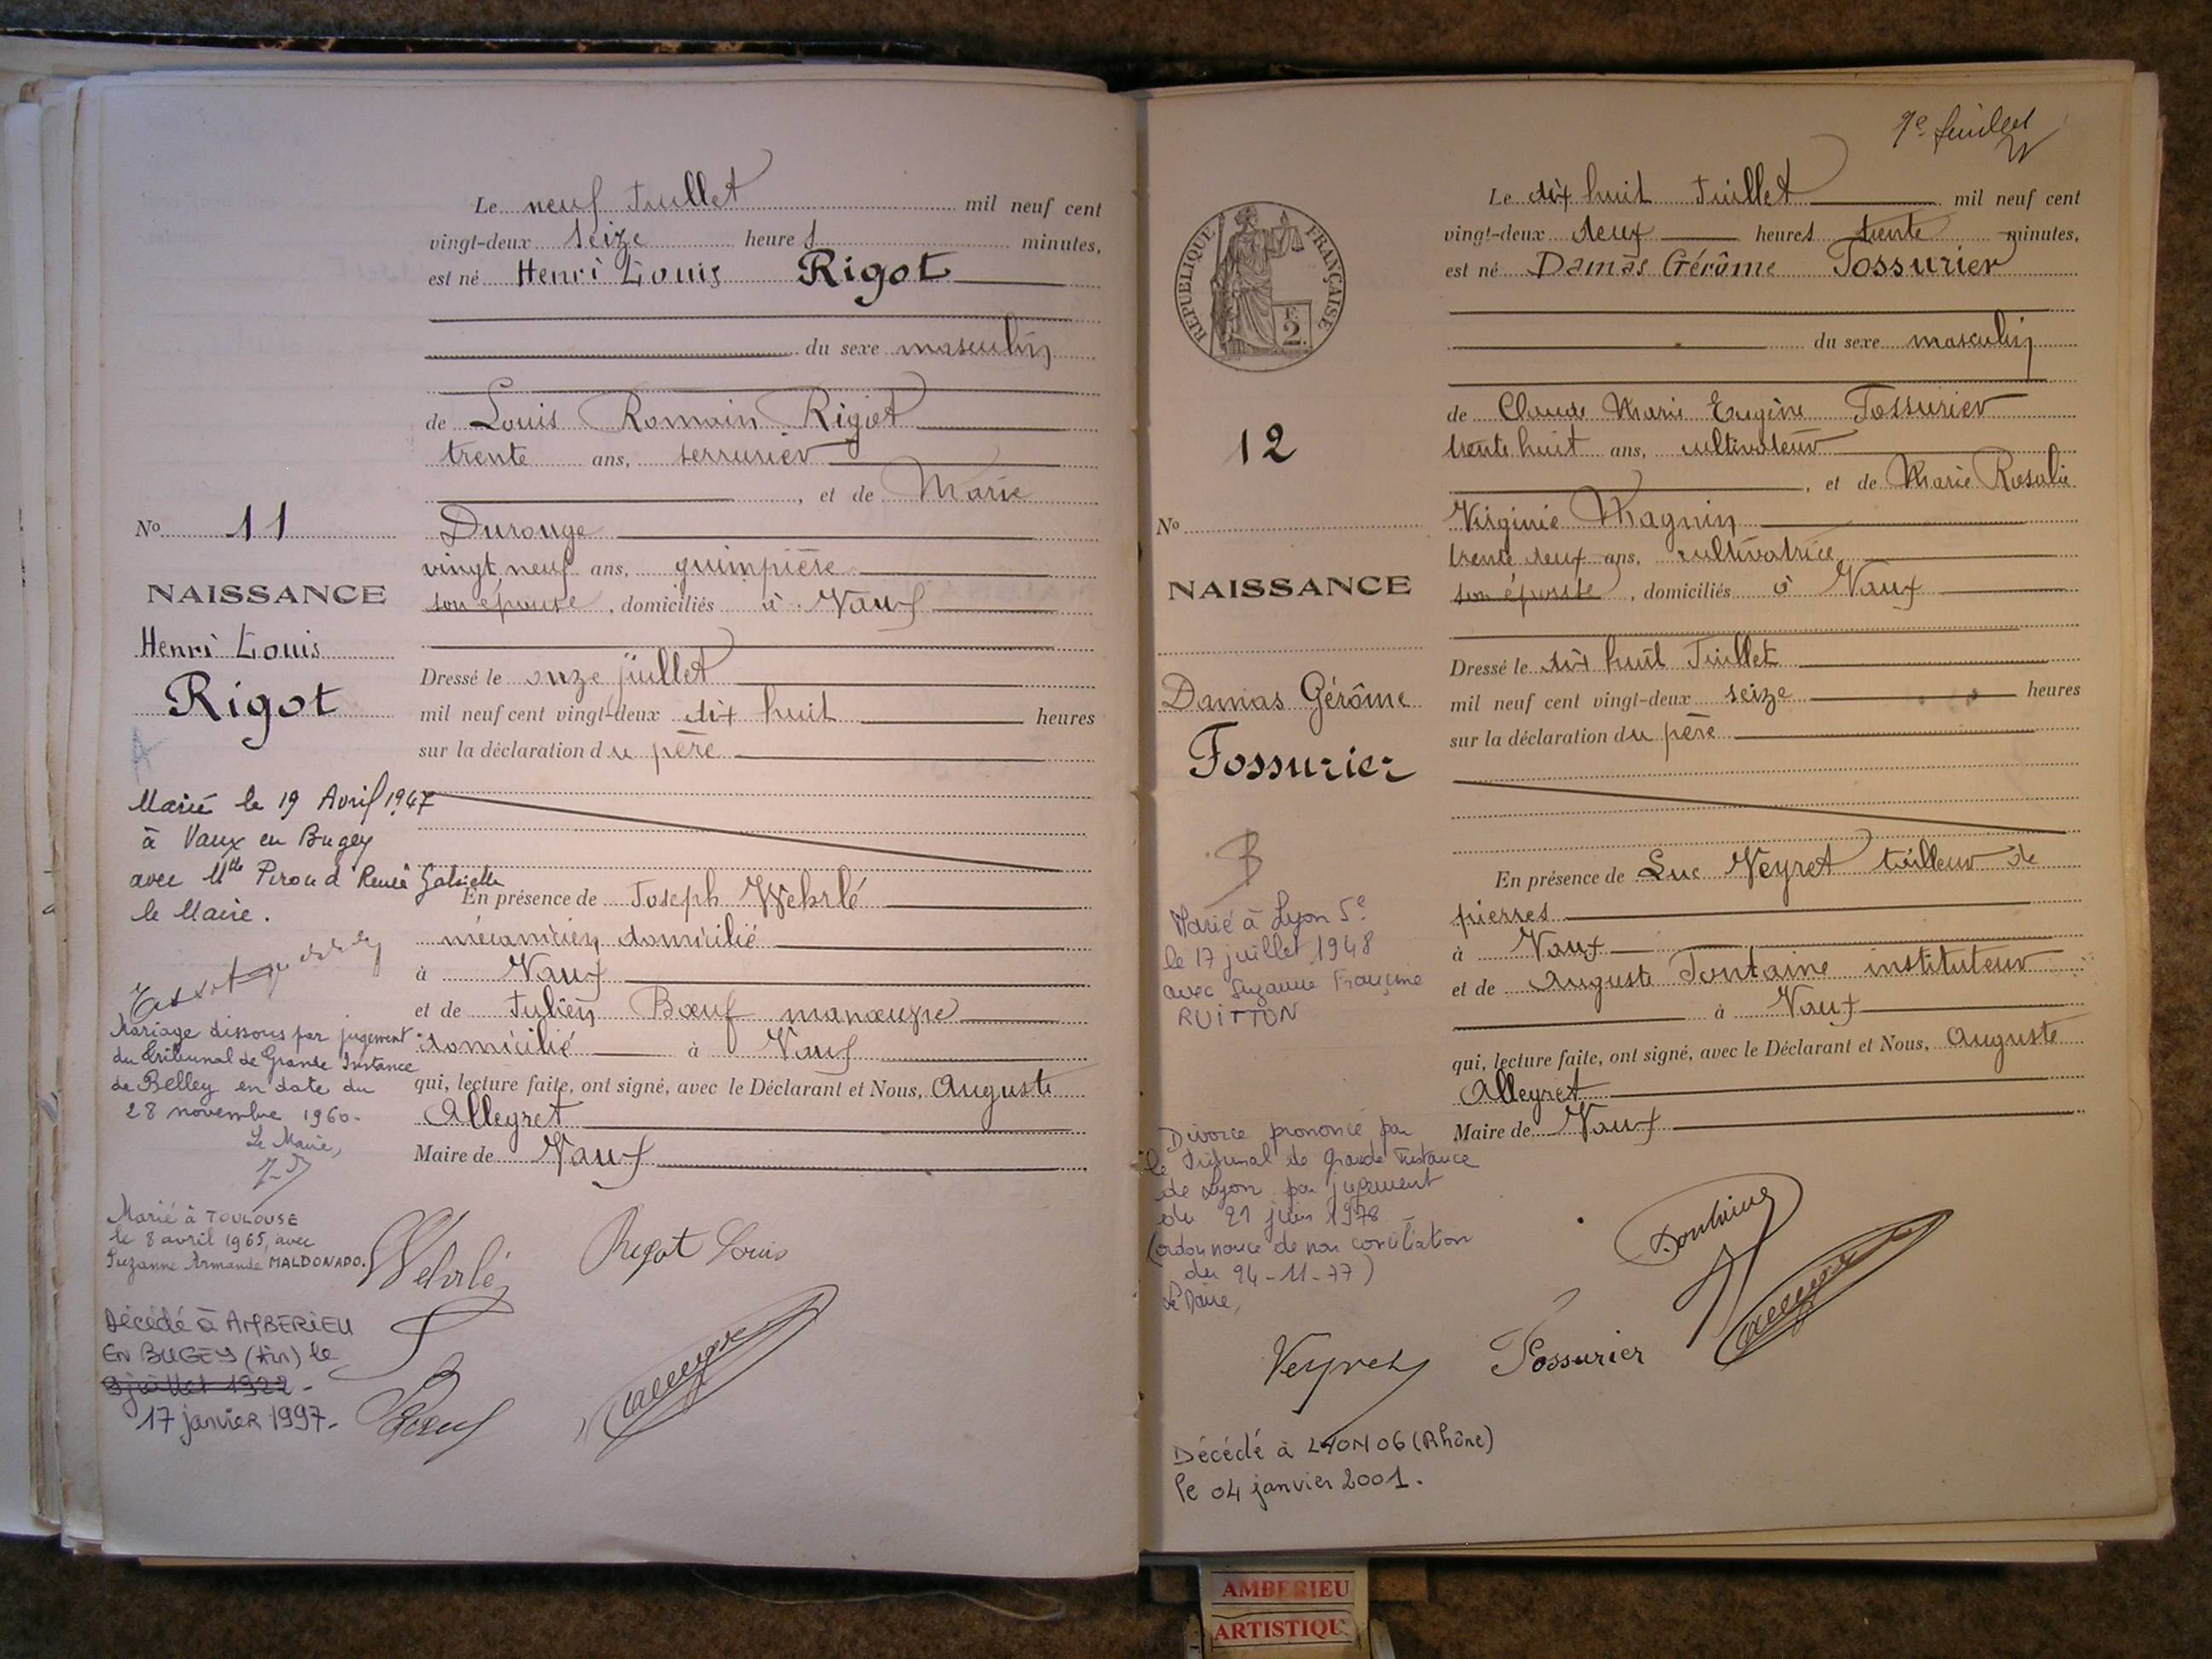 Le neuf Juillet mil neuf cent
vingt-deux seize heures minutes,
est né Henri Louis Rigot
du sexe masculin
de Louis Romain Rigot
trente ans, serrurier
, et de Marie
Durouge
vingt neuf ans, guimpière
son épouse, domiciliés à Vaux
Dressé le onze juillet
mil neuf cent vingt-deux dix huit heures
sur la déclaration du père
En présence de Joseph Wehrlé
mécanicien domicilié
à Vaux
et de Julien Bœuf manœuvre
domicilié à Vaux
qui, lecture faite, ont signé, avec le Déclarant et Nous, Auguste
Alleyret
Maire de Vaux
No 11
NAISSANCE
Henri Louis
Rigot
Marié le 19 Avril 1947
à Vaux en Bugey
avec Mlle Piroud Renée Gabrielle
le Maire.
Mariage dissous par jugement
du Tribunal de Grande Instance
de Belley en date du
28 novembre 1960.
Le Maire,
Marié à TOULOUSE
le 8 avril 1965, avec
Suzanne Armande MALDONADO.
Décédé à AMBERIEU
EN BUGEY (Ain) le
9 juillet 1922 -
17 janvier 1997-
Wehrlé
Rigot Louis
Bœuf
Alleyret
9e feuillet
REPUBLIQUE FRANÇAISE
F.
2.
Le dix huit Juillet mil neuf cent
vingt-deux deux heures trente minutes,
est né Damas Gérôme Fossurier
du sexe masculin
de Claude Marie Eugène Fossurier
trente huit ans, cultivateur
, et de Marie Rosalie
Virginie Magnin
trente deux ans, cultivatrice
son épouse, domiciliés à Vaux
Dressé le dix huit Juillet
mil neuf cent vingt-deux seize heures
sur la déclaration du père
En présence de Luc Veyret tailleur de
pierres
à Vaux
et de Auguste Fontaine instituteur
à Vaux
qui, lecture faite, ont signé, avec le Déclarant et Nous, Auguste
Alleyret
Maire de Vaux
12
No
NAISSANCE
Damas Gérôme
Fossurier
Marié à Lyon 5e
le 17 juillet 1948
avec Suzanne Françine
RUITTON
Divorce prononcé par
le Tribunal de Grande Instance
de Lyon par jugement
du 21 juin 1978
(ordonnance de non conciliation
du 24-11-77)
Le Maire,
Fontaine
Veyret
Fossurier
Alleyret
Décédé à LYON 06 (Rhône)
le 04 janvier 2001.
AMBERIEU
ARTISTIQU